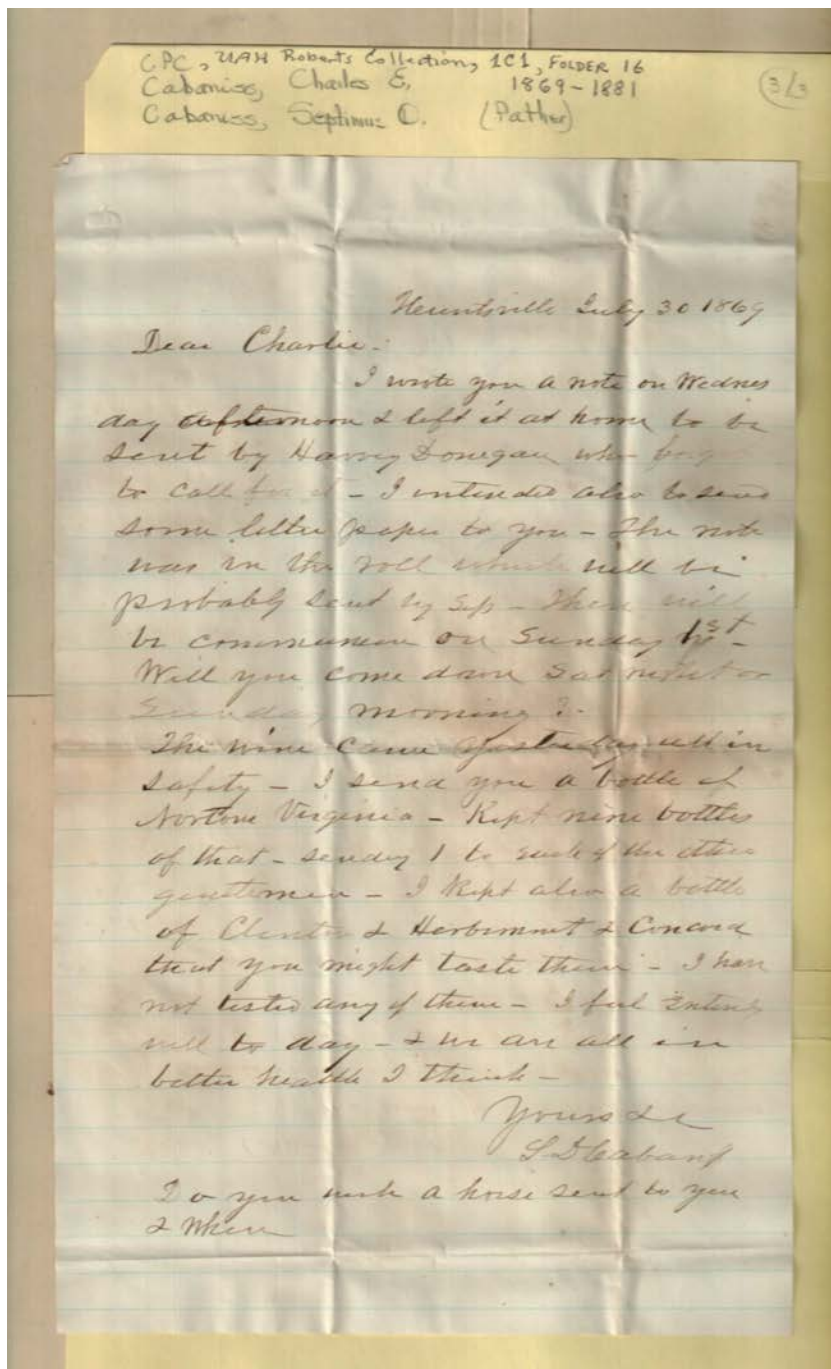 CPC, UAH Roberts Collection, 1C1, FOLDER 16
Cabaniss, Charles E. 1869-1881
Cabaniss, Septimus D. (Father)
3/3
Huntsville July 30 1869
Dear Charlie.
I wrote you a note on Wednes
day afternoon & left it at home to be
sent by Harvey Donegan who forgot
to call for it - I intended also to send
some letter paper to you - The note
was in the roll which will be
probably sent by Sep - There will
be communion on Sunday 1st -
Will you come down Sat night or
Sunday morning?
The wine came yesterday all in
safety - I send you a bottle of
Nortons Virginia - Kept nine bottles
of that - sending 1 to each of the other
gentlemen - I kept also a bottle
of Clinton & Herbemont & Concord
that you might taste them - I have
not tested any of them - I feel entirely
well to day - & we are all in
better health I think -
Yours &c
S D Cabaniss
Do you wish a horse sent to you
& When